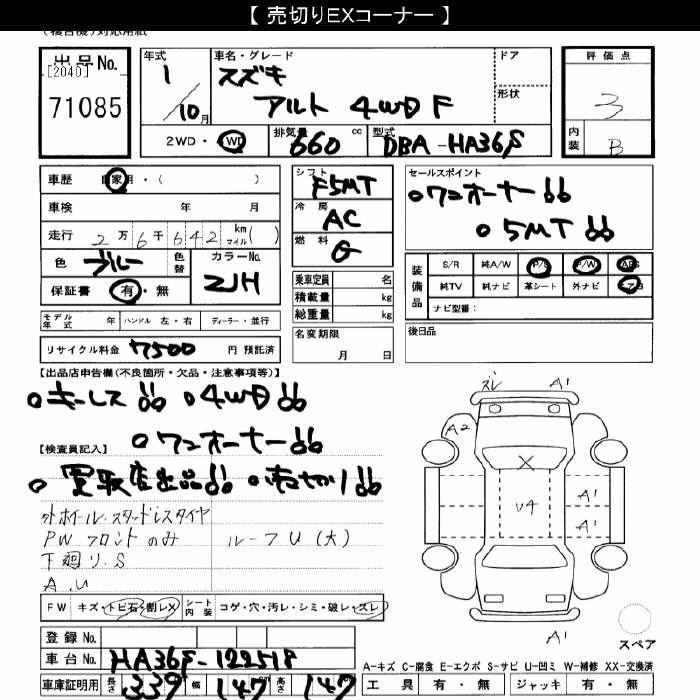 【 売切りEXコーナー 】
出品No.
[2040]
71085
年式
1/10月
車名・グレード
スズキ
アルト 4WD F
ドア
形状
評価点
3
内装 B
2WD・4WD
排気量 660 cc
型式 DBA-HA36S
車歴 自家用・( )
車検 年 月
走行 2万6千642 km マイル( )
色 ブルー 色替
カラーNo. ZJH
保証書 有・無
シフト F5MT
冷房 AC
燃料 G
乗車定員 名
積載量 kg
総重量 kg
セールスポイント
○ワンオーナー!!
○5MT!!
装備品
S/R 純A/W P/S P/W ABS
純TV 純ナビ 革シート 外ナビ エアB
ナビ型番:
モデル年式 年 ハンドル 左・右 ディーラー・並行
リサイクル料金 7500 円 預託済
名変期限
月 日
後日品
【出品店申告欄(不良箇所・欠品・注意事項等)】
○キーレス!! ○4WD!!
○ワンオーナー!!
【検査員記入】
○買取店出品!! ○売切り!!
外ホイール・スタッドレスタイヤ
PWフロントのみ ルーフU(大)
下廻り.S
A.U
FW キズ・トビ石・割レX シート内装 コゲ・穴・汚レ・シミ・破レ・スレ
ズレ A1
A2
X
U4
A1
A1
A1
スペア
登録No.
車台No. HA36S-122518
車庫証明用 長さ 339 幅 147 高さ 147
A-キズ C-腐食 E-エクボ S-サビ U-凹ミ W-補修 XX-交換済
工具 有・無 ジャッキ 有・無